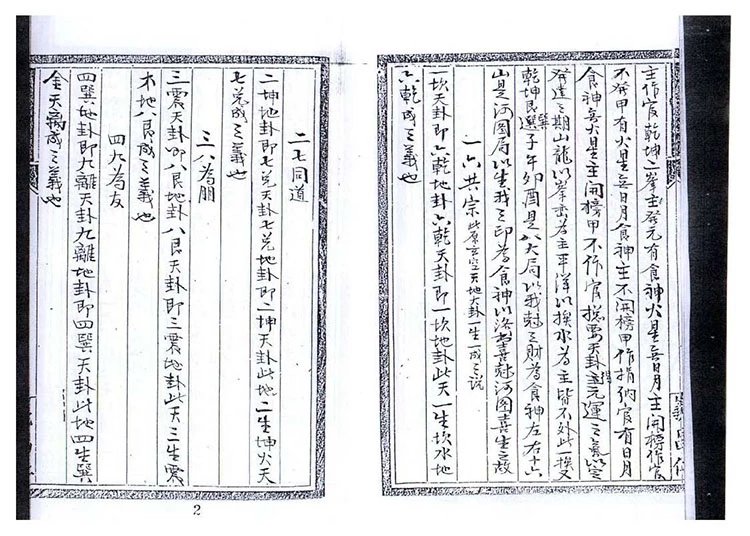 主作官乾坤二峯主發元有食神火星無日月主開榜作官
不發甲有火星無日月食神主不開榜甲作捐納官有日月
食神無火星主開榜甲不作官揔要天卦逢元運之氣以定
發達之期山龍以峯巒為主平洋以挨水為主皆不外此一挨又
乾坤艮巽子午卯酉是八大局以我尅之財為食神左右十六
山是河圖局以生我之印為食神以洛書喜尅河圖喜生之故
一六共宗 此原玄空天地大卦一生一成之說
一坎天卦即六乾地卦六乾天卦即一坎地卦此天一生坎水地
六乾成之義也
二七同道
二坤地卦即七兌天卦七兌地卦即二坤天卦此地二生坤火天
七兌成之義也
三八為朋
三震天卦即八艮地卦八艮天卦即三震地卦此天三生震
木地八艮成之義也
四九為友
四巽地卦即九離天卦九離地卦即四巽天卦此地四生巽
金天九離成之義也
2